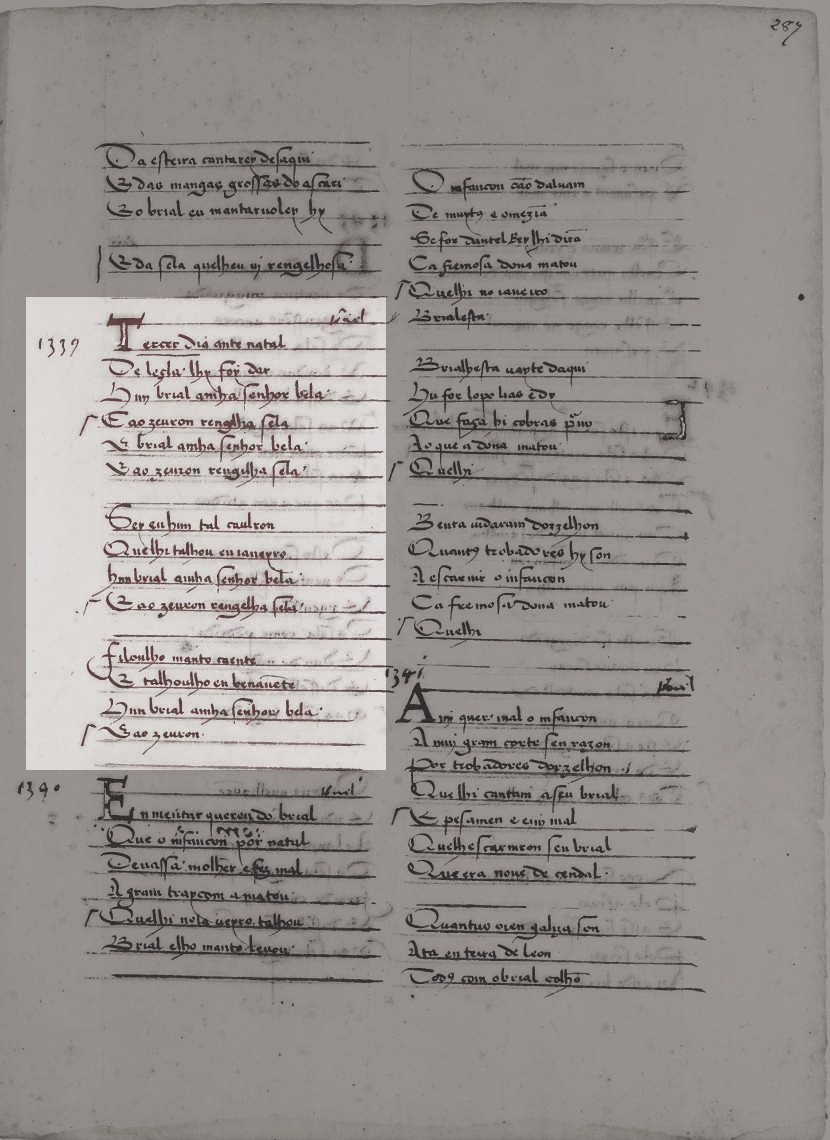 287
Da esteira cantarey desaqui
E das mangas grossas do ascari
E o brial eu mantaruoley hy
E da sela quelheu uj rengelhosa
1339
Tercer dia ante natal
De legla lhy foy dar
Hun brial amha senhor bela
E ao zeuron rengelha sela
E brial amha senhor bela
E ao zeuron rengelha sela
Sey eu hun tal caulron
Quelhi talhou en ianeyro
hun brial amha senhor bela
E ao zeuron rengelha sela
filoulho manto caente
E talhoulho en benauete
Hun brial amha senhor bela
E ao zeuron
1340
En mentar querendo brial
Que o infancon por natal
Deuassa molher e fez mal
A gram traycom a matou
Quelhi no ia ueyro talhou
Brial elho manto leuou
O infancon cão daluam
De muytꝯ e omezia
Se for dantel Rey lhi dira
Ca fremosa dona matou
Quelhi no ianeiro
Brialesta
Brialhesta uayte daqui
Hu for lope lias e dy
Que faça hi cobras por my
Ao que a dona matou
Quelhi
Benta uidaram dorzelhon
Quantꝯ trobadores hy son
A escarnir o infancon
Ca fremosa dona matou
Quelhi
1341
A mi quer mal o infancon
A muy gram corto sen razon
Por trobadores dorzelhon
Que lhi cantam a seu brial
E pesamen e emj mal
Quelhescarniron seu brial
Que era nouo de cendal
Quantuo oien galiza son
Ata en terra de leon
Todꝯ com o brial colhõ